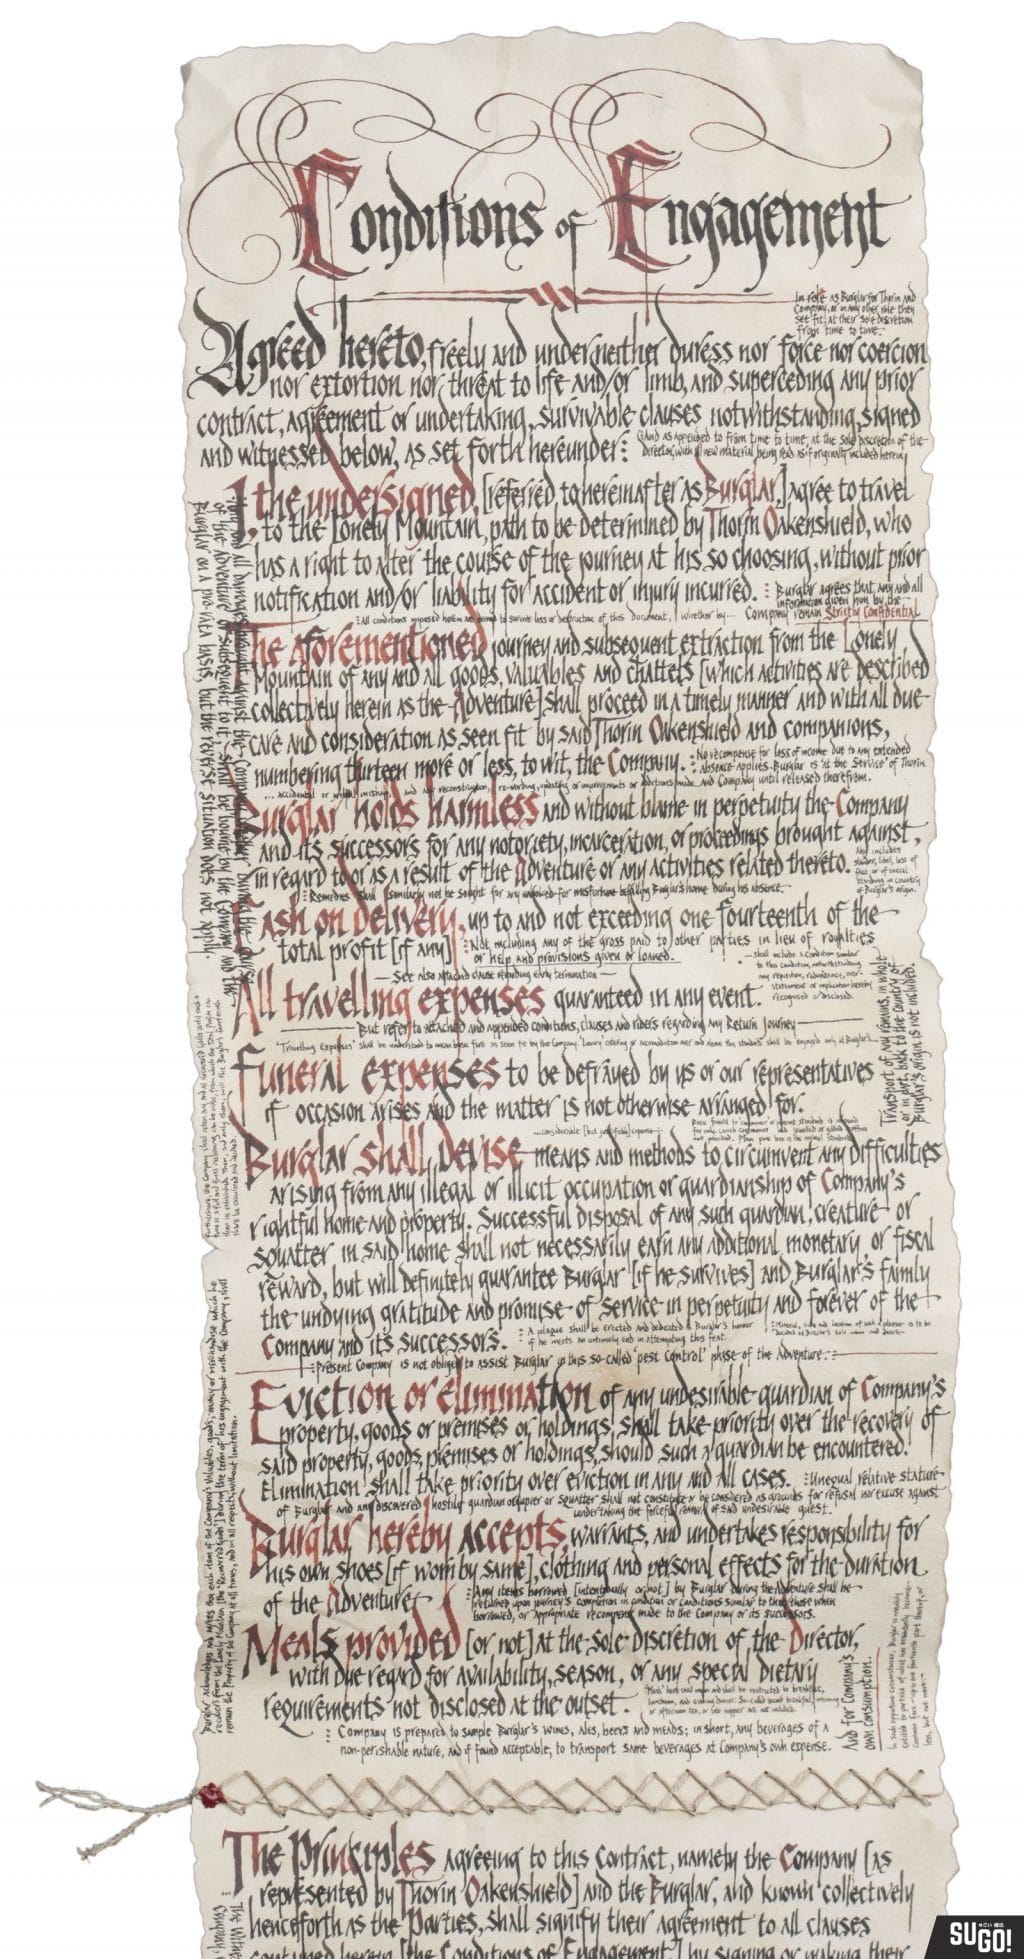 Conditions of Engagement
In role as Burglar for Thorin and
Company, or in any other role they
see fit, at their sole discretion
from time to time.
Agreed hereto, freely and under neither duress nor force nor coercion
nor extortion nor threat to life and/or limb, and superceding any prior
contract, agreement or undertaking, survivable clauses notwithstanding, signed
and witnessed below, as set forth hereunder:
and as appended to from time to time, at the sole discretion of the
Director, with all new material being read as if originally included herein
I, the undersigned, [referred to hereinafter as Burglar,] agree to travel
to the Lonely Mountain, path to be determined by Thorin Oakenshield, who
has a right to alter the course of the journey at his so choosing, without prior
notification and/or liability for accident or injury incurred.
Burglar agrees that any and all
information given him by the
Company remain Strictly Confidential
All conditions imposed herein are deemed to survive loss or destruction of this Document, whether by...
The aforementioned journey and subsequent extraction from the Lonely
Mountain of any and all goods, valuables and chattels [which activities are described
collectively herein as the Adventure] shall proceed in a timely manner and with all due
care and consideration as seen fit by said Thorin Oakenshield and companions,
numbering thirteen more or less, to wit, the Company.
No recompense for loss of income due to any extended
absence applies. Burglar is 'at the Service' of Thorin
and Company until released therefrom.
...accidental or wilful mishap, and any reconstruction, re-wording, updating or improvements or additions made
Burglar holds harmless and without blame in perpetuity the Company
and its successors for any notoriety, incarceration, or proceedings brought against,
in regard to or as a result of the Adventure or any activities related thereto.
Also includes
slander, libel, loss of
face or of social
standing in country
of Burglar's origin.
Remedies shall similarly not be sought for any unlooked-for misfortune befalling Burglar's home during his absence.
Cash on delivery, up to and not exceeding one fourteenth of the
total profit [if any]
Not including any of the gross paid to other parties in lieu of royalties
or help and provisions given or loaned.
See also attached clause regarding early termination
...shall include a Condition similar
to this Condition, notwithstanding
any repetition, redundancy, over-
statement or implication hereby
recognised or disclosed.
All travelling expenses guaranteed in any event.
But refer to attached and appended conditions, clauses and riders regarding any Return Journey
Transport of any remains, in whole
or in part, back to the country of
Burglar's origin is not included.
Funeral expenses to be defrayed by us or our representatives
if occasion arises and the matter is not otherwise arranged for.
...considerable [but justifiable] expense
Burglar shall devise means and methods to circumvent any difficulties
arising from any illegal or illicit occupation or guardianship of Company's
rightful home and property. Successful disposal of any such guardian, creature or
squatter in said home shall not necessarily earn any additional monetary, or fiscal
reward, but will definitely guarantee Burglar [if he survives] and Burglar's family
the undying gratitude and promise of service in perpetuity and forever of the
Company and its successors.
A plaque shall be erected and dedicated in Burglar's honour
if he meets an untimely end in attempting this feat.
Material, size and location of such a plaque is to be
decided at Director's sole whim and desire
Present Company is not obliged to assist Burglar in this so-called 'pest control' phase of the Adventure.
Eviction or elimination of any undesirable guardian of Company's
property, goods or premises or holdings, shall take priority over the recovery of
said property, goods, premises or holdings, should such a guardian be encountered.
Elimination shall take priority over eviction in any and all cases.
Unequal relative stature
of Burglar and any discovered hostile guardian occupier or squatter shall not constitute or be considered as grounds for refusal nor excuse against
undertaking the forceful removal of said undesirable guest.
Burglar hereby accepts, warrants, and undertakes responsibility for
his own shoes [if worn by same], clothing and personal effects for the duration
of the Adventure
Any items borrowed [intentionally or not] by Burglar during the Adventure shall be
returned upon journey's completion in condition or conditions similar to that those when
borrowed, or appropriate recompense made to the Company or its successors.
Meals provided [or not] at the sole discretion of the Director,
with due regard for availability, season, or any special dietary
requirements not disclosed at the outset.
And for Company's
own consumption.
Company is prepared to sample Burglar's wines, ales, beers and meads; in short, any beverages of a
non-perishable nature, and if found acceptable, to transport same beverages at Company's own expense.
The Principles agreeing to this Contract, namely the Company [as
represented by Thorin Oakenshield] and the Burglar, and known collectively
henceforth as the Parties, shall signify their agreement to all clauses
contained herein [the Conditions of Engagement] by signing or making their
SUGO!